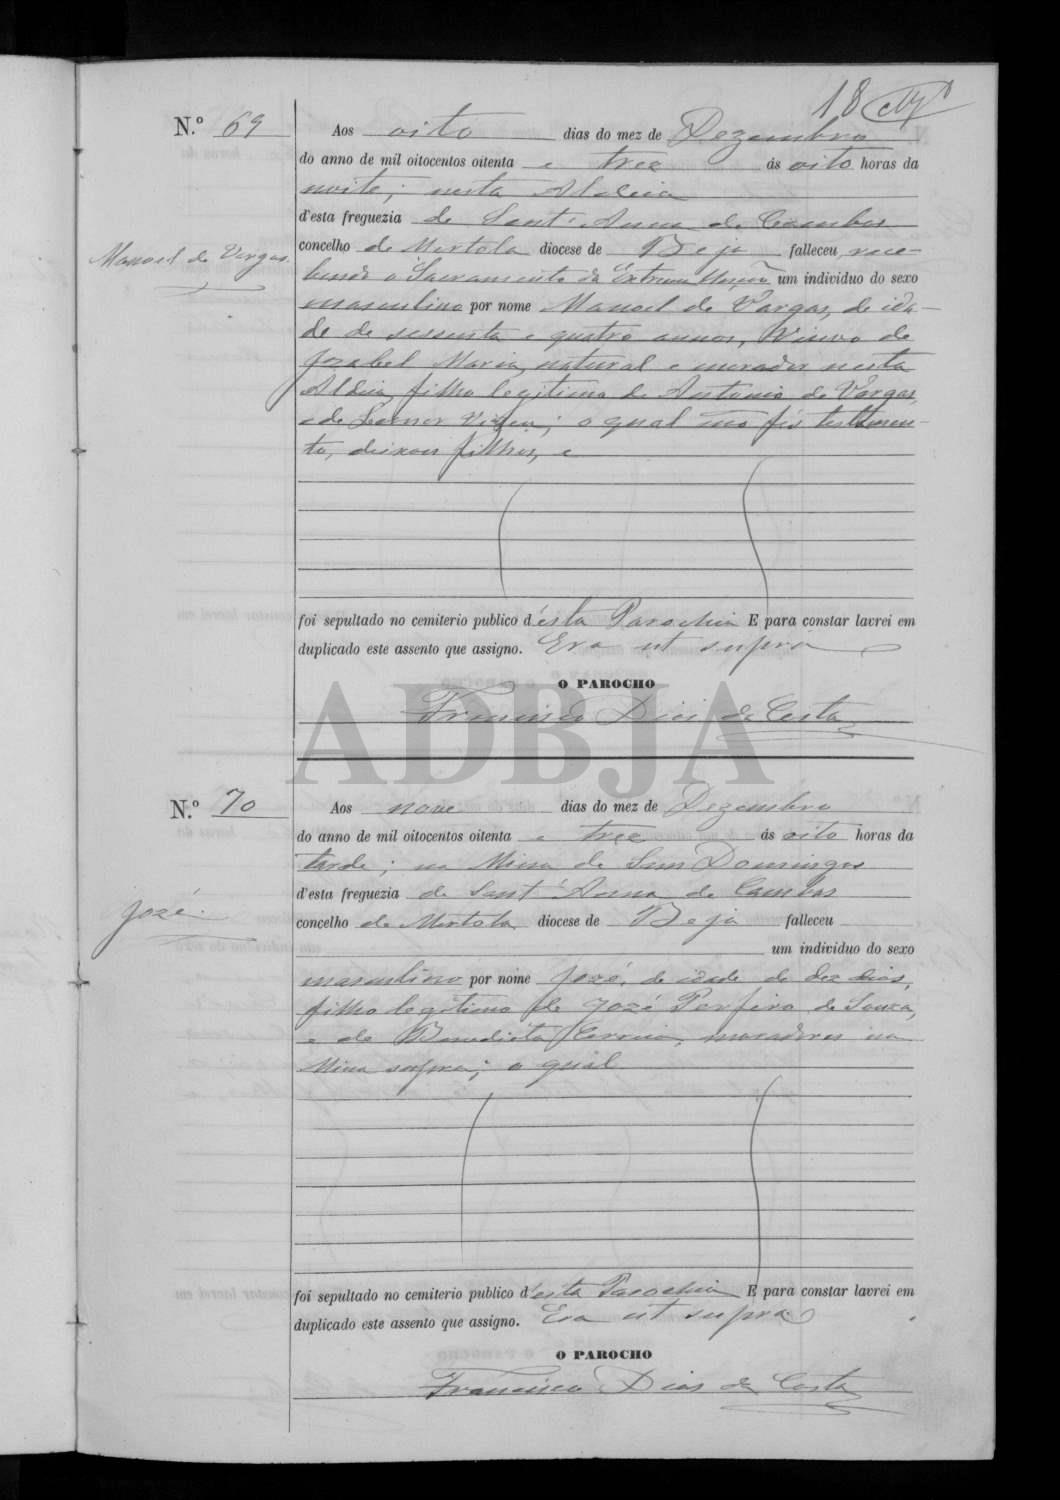 18
N.º 69
Aos oito dias do mez de Dezembro
do anno de mil oitocentos oitenta e trez ás oito horas da
noite; nesta Aldeia
d'esta freguezia de Sant'Anna de Cambas
Manoel de Vargas
concelho de Mertola diocese de Beja falleceu, rece-
bendo o Sacramento da Extrema Unção um individuo do sexo
masculino por nome Manoel de Vargas, de ida-
de de sessenta e quatro annos, Viuvo de
Jozabel Maria, natural e morador nesta
Aldeia, filho legitimo de Antonio de Vargas,
e de Leonor; o qual não fés testamen-
to, deixou filhos, e
foi sepultado no cemiterio publico d'esta Parochia E para constar lavrei em
duplicado este assento que assigno. Era ut supra
O PAROCHO
Francisco Dias da Costa
ADBJA
N.º 70
Aos nove dias do mez de Dezembro
do anno de mil oitocentos oitenta e trez ás oito horas da
tarde; na Mina de Sam Domingos
d'esta freguezia de Sant'Anna de Cambas
Jozé.
concelho de Mertola diocese de Beja falleceu
um individuo do sexo
masculino por nome Jozé, de idade de dez dias,
filho legitimo de Jozé Perfeiro de Souza,
e de Benedicta Correia, moradores na
Mina supra; o qual
foi sepultado no cemiterio publico d'esta Parochia E para constar lavrei em
duplicado este assento que assigno. Era ut supra
O PAROCHO
Francisco Dias da Costa